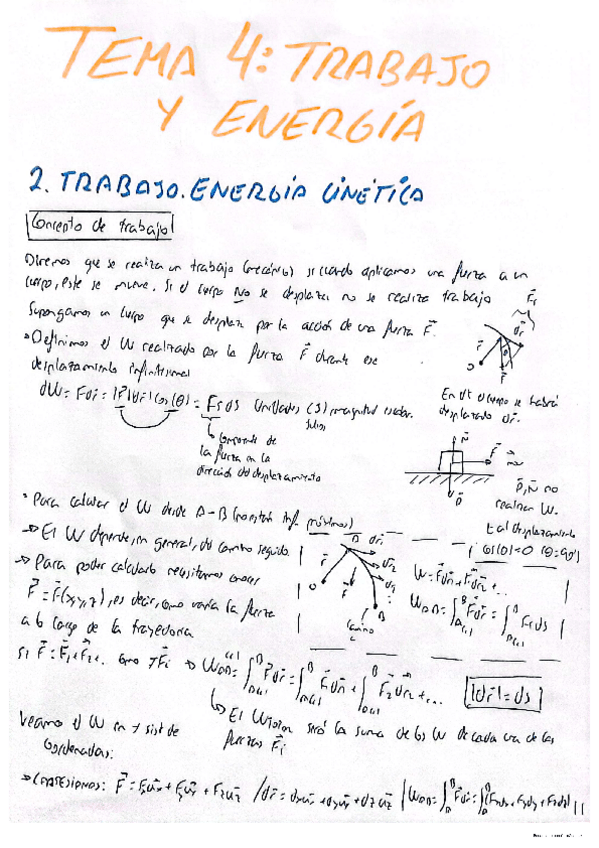 TEMA 4: TRABAJO
Y ENERGÍA
2. TRABAJO. ENERGÍA CINÉTICA
Concepto de trabajo
Diremos que se realiza un trabajo (mecánico) si cuando aplicamos una fuerza a un
cuerpo, este se mueve. Si el cuerpo No se desplaza no se realiza trabajo
Supongamos un cuerpo que se desplaza por la acción de una fuerza F⃗.
• Definimos el W realizado por la fuerza F⃗ durante ese
desplazamiento infinitesimal
dW = F⃗dr⃗ = |F⃗||dr⃗|cos(θ) = Fs ds Unidades (J) magnitud escalar.
Julios
Componente de
la fuerza en la
dirección del desplazamiento
En dt el cuerpo se habrá
desplazado dr⃗.
P⃗, N⃗ no
realizan W.
⊥ al desplazamiento
cos(θ)=0 (θ=90°)
• Para calcular el W desde A-B
→ El W depende, en general, del camino seguido.
→ Para poder calcularlo necesitamos conocer
F⃗ = F⃗(x,y,z), es decir, como varía la fuerza
a lo largo de la trayectoria
camino
W = F⃗dr⃗₁ + F⃗dr⃗₂ + ...
W_AB = ∫ F⃗dr⃗ = ∫ Fs ds
Si F⃗ = F⃗₁ + F⃗₂ + ... → W_AB = ∫ F⃗dr⃗ = ∫ F⃗₁dr⃗₁ + ∫ F⃗₂dr⃗₂ + ... |dr⃗| = ds
→ El W total será la suma de los W de cada una de las
fuerzas F⃗i
Veamos el W en sist de
coordenadas:
→ CARTESIANAS: F⃗ = Fxux⃗ + Fyuy⃗ + Fzuz⃗ / dr⃗ = dxux⃗ + dyuy⃗ + dzuz⃗ | W_AB = ∫ F⃗dr⃗ = ∫ (Fxdx + Fydy + Fzdz)